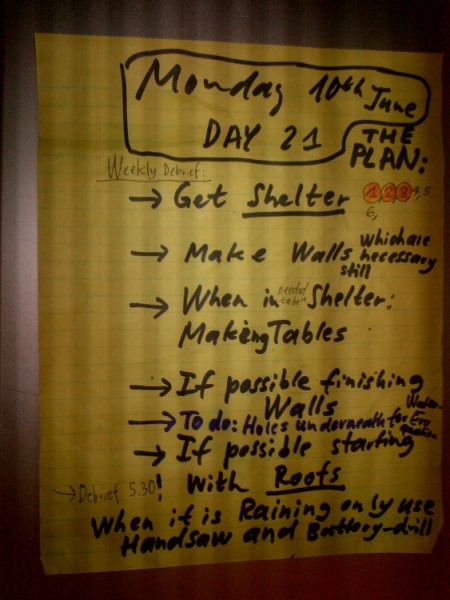 Monday 10th June
DAY 21
THE PLAN:
Weekly Debrief:
→ Get Shelter 1, 2, 3, 4, 5
6,
→ Make Walls which are necessary still
→ When in needed to be in Shelter:
Making Tables
→ If possible finishing
Walls
→ To do: Holes underneath for Water-
→ If possible starting
With Roofs
→ Debrief 5.30!
When it is Raining only use
Handsaw and Battery-drill